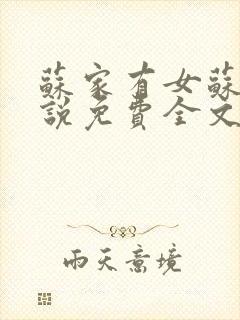 蘇家有女蘇
說免費全文
雨天意境